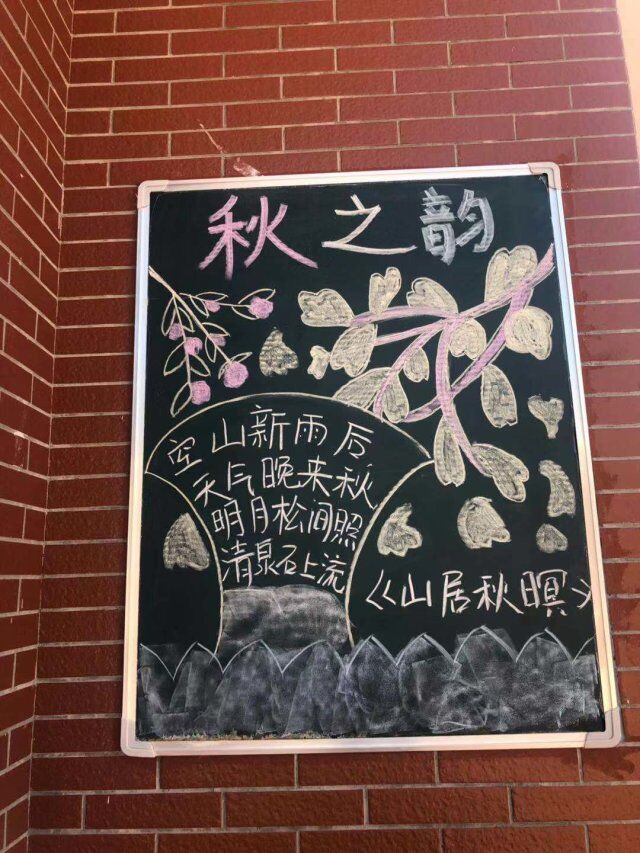 秋之韵
空山新雨后
天气晚来秋
明月松间照
清泉石上流
《山居秋暝》